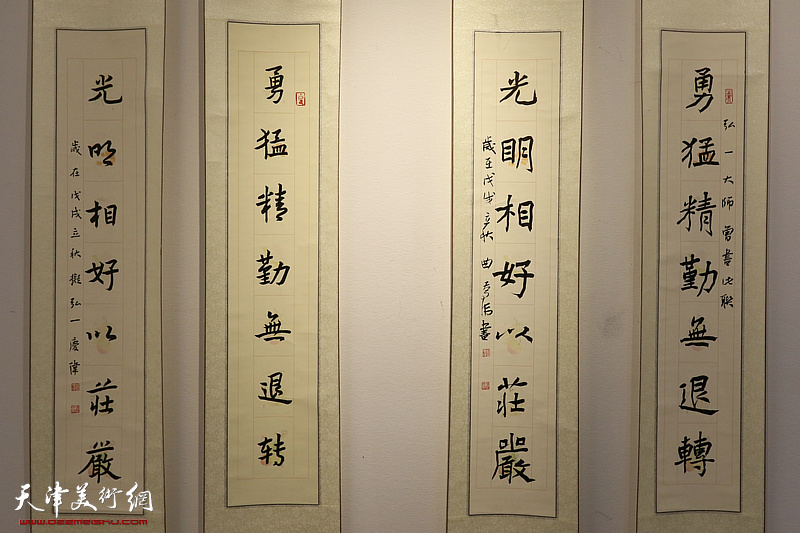 勇猛精勤無退轉
弘一大師曾書此聯
光明相好以莊嚴
歲至戊戌立秋曲
勇猛精勤無退转
光明相好以莊嚴
歲在戊戌立秋擬弘一慶偉
天津美術網